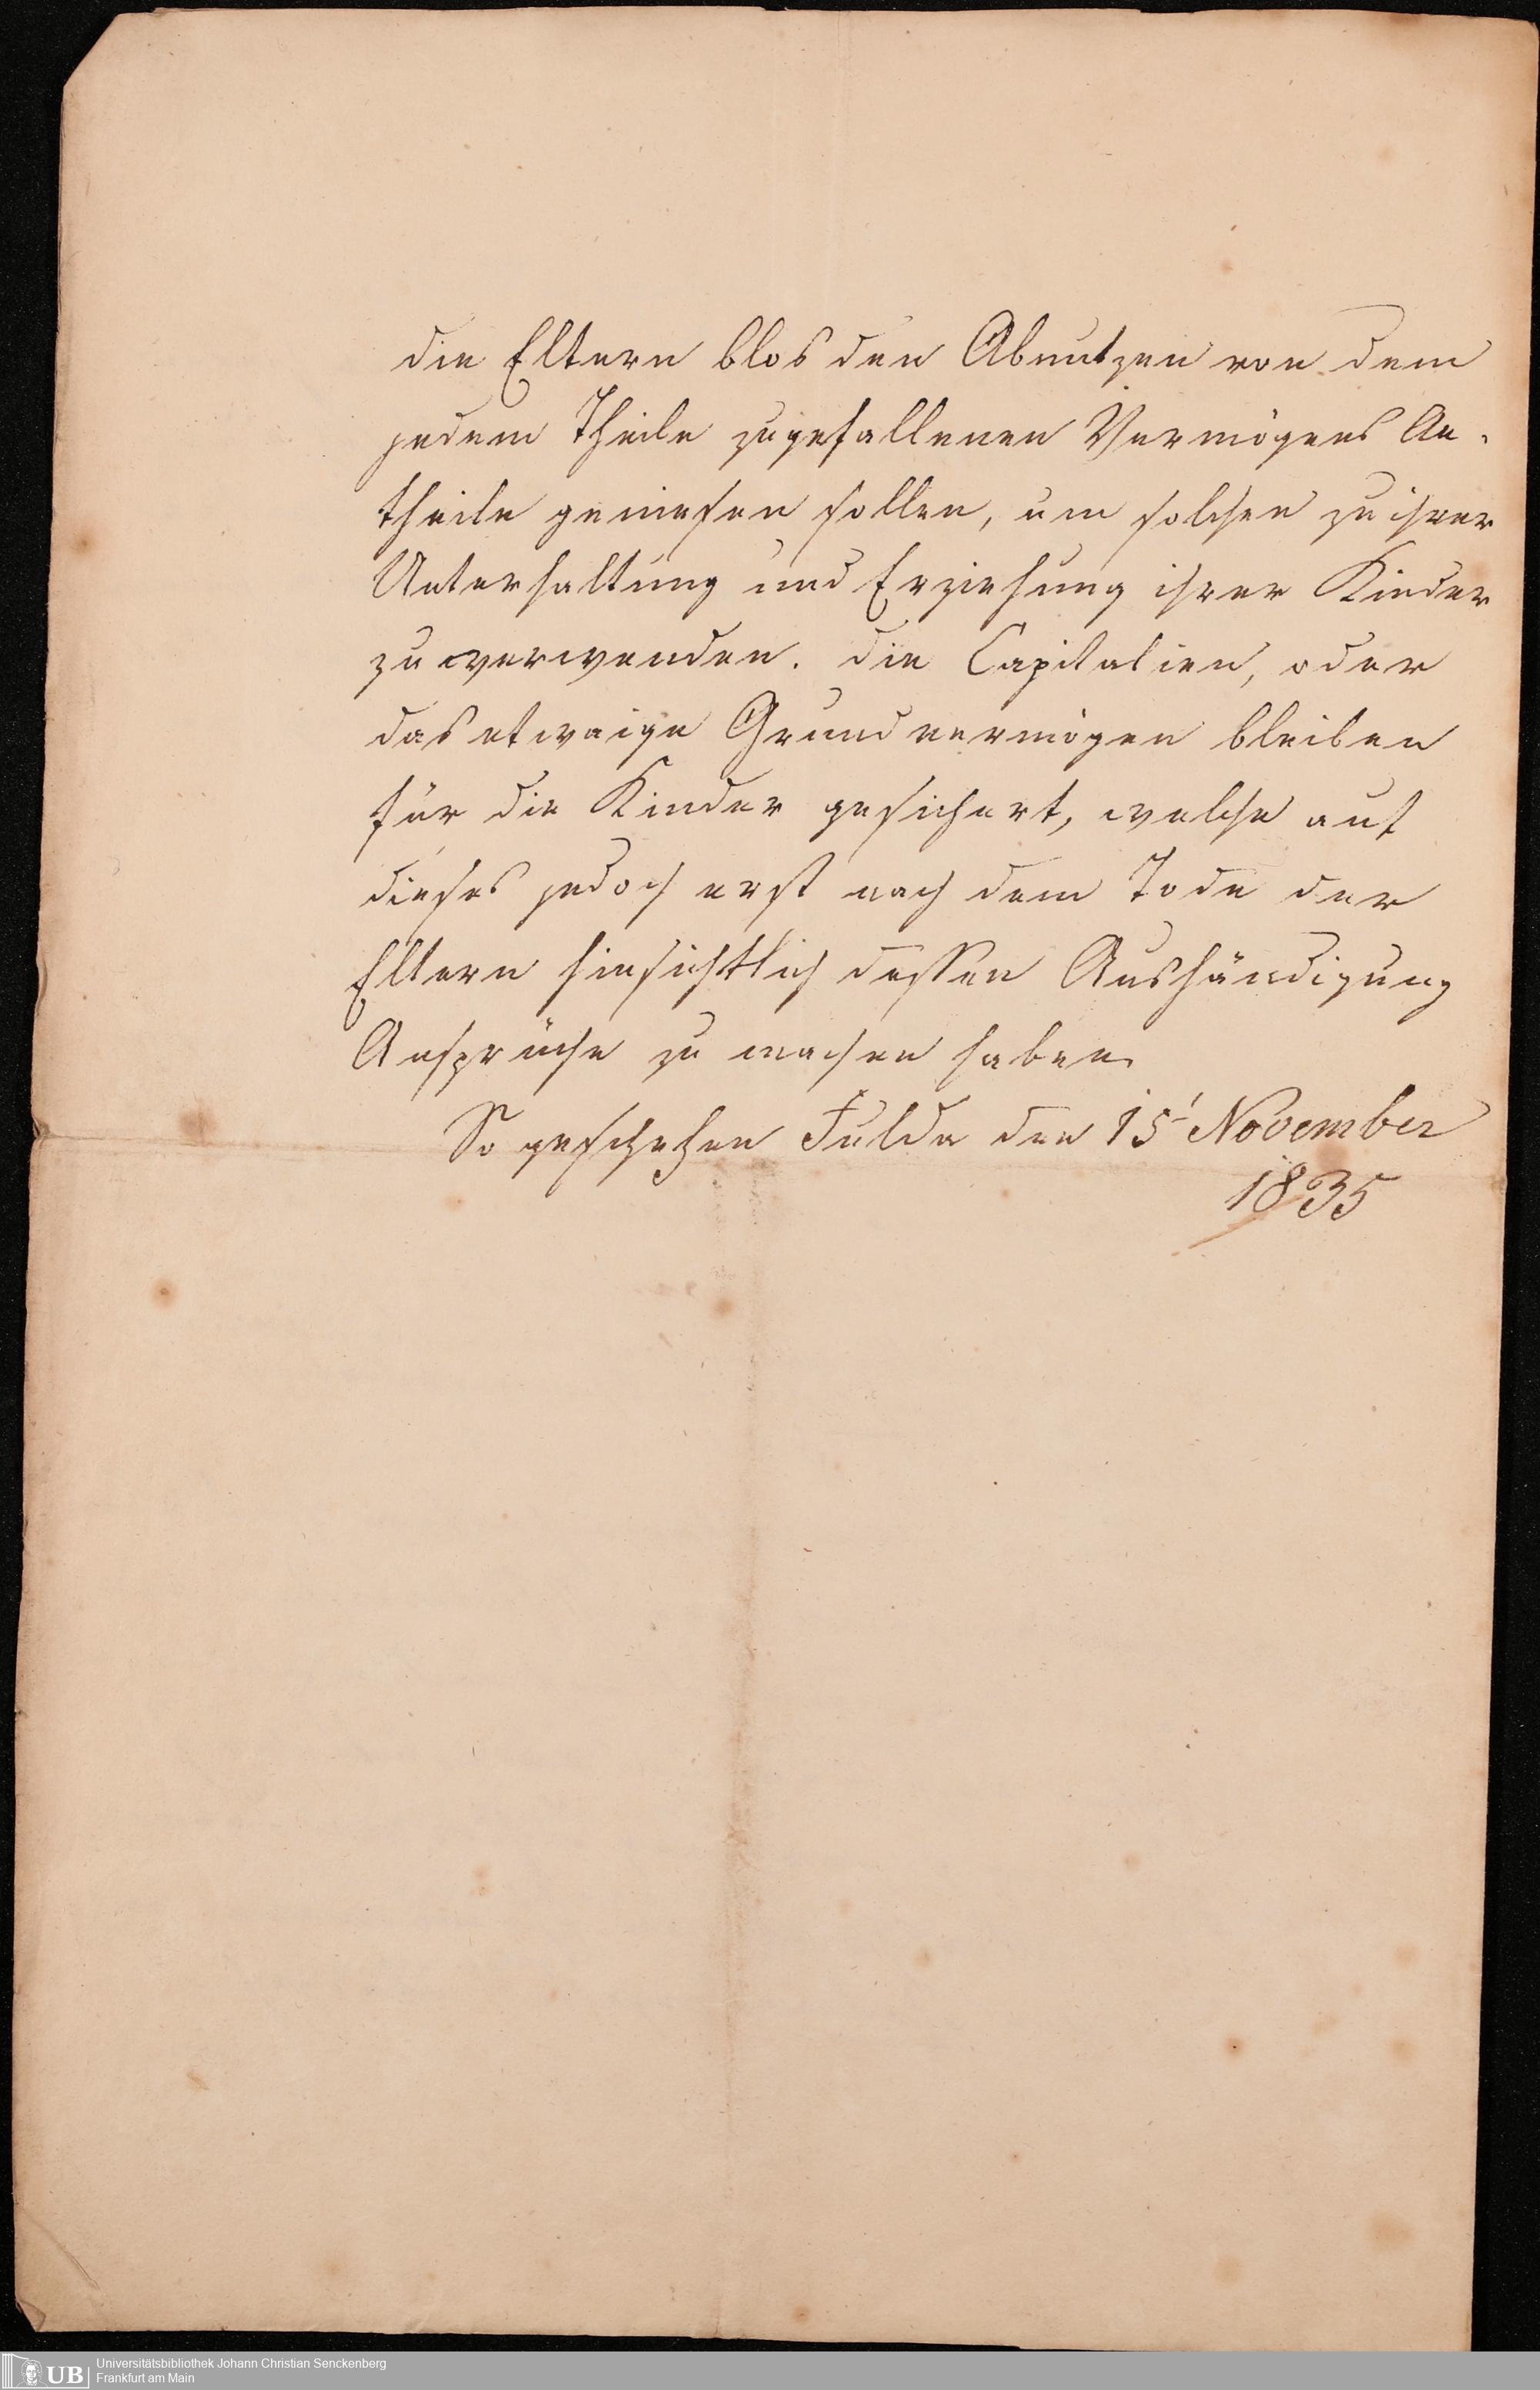 die Eltern blos den Abnutzen von dem
jedem Theile zugefallenen Vermögens An-
theile geniesen sollen, um solchen zu ihrer
Unterhaltung und Erziehung ihrer Kinder
zu verwenden. Die Capitalien, oder
das etwaige Grundvermögen bleiben
für die Kinder gesichert, welche auf
dieses jedoch erst nach dem Tode der
Eltern hinsichtlich dessen Aushändigung
Ansprüche zu machen haben.
So geschehen Fulda den 15 November
1835
UB
Universitätsbibliothek Johann Christian Senckenberg
Frankfurt am Main